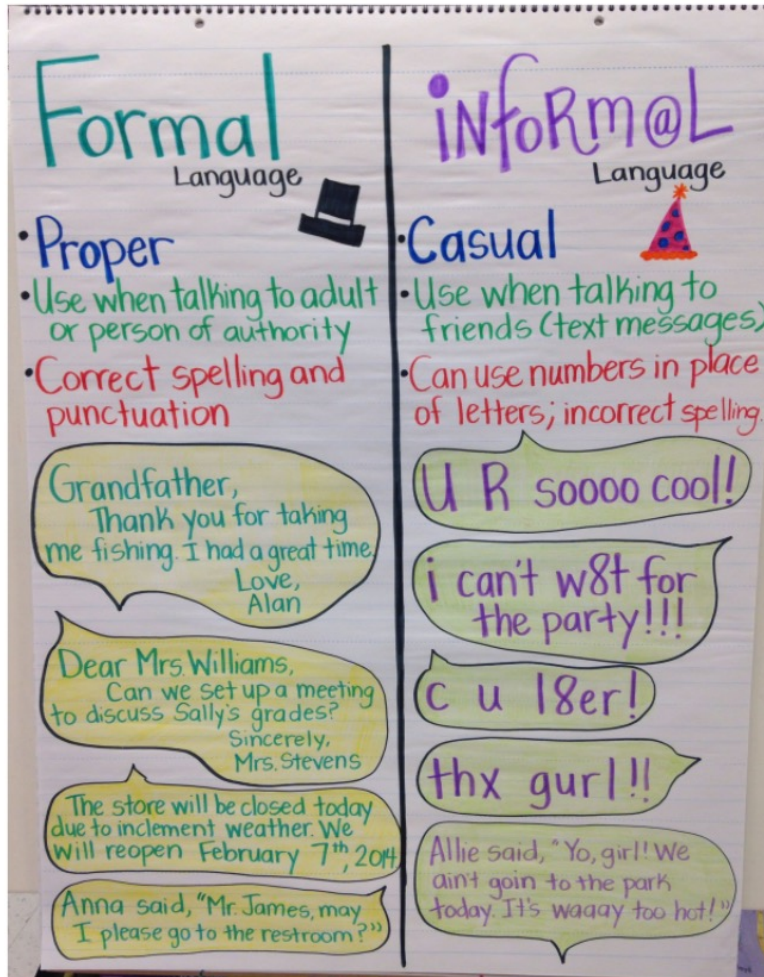 Formal
Language
• Proper
• Use when talking to adult
or person of authority
• Correct spelling and
punctuation
Grandfather,
Thank you for taking
me fishing. I had a great time.
Love,
Alan
Dear Mrs. Williams,
Can we set up a meeting
to discuss Sally's grades?
Sincerely,
Mrs. Stevens
The store will be closed today
due to inclement weather. We
will reopen February 7th, 2014
Anna said, "Mr. James, may
I please go to the restroom?"
iNfoRm@L
Language
• Casual
• Use when talking to
friends (text messages)
• Can use numbers in place
of letters; incorrect spelling.
U R soooo cool!
i can't w8t for
the party!!!
c u l8er!
thx gurl!!
Allie said, "Yo, girl! We
ain't goin to the park
today. It's waaay too hot!"